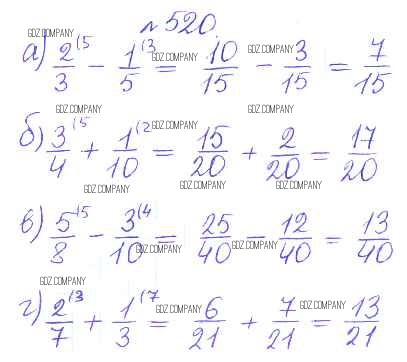 № 520.
GDZ.COMPANY
а) 2/3 (5 − 1/5 (3 = 10/15 − 3/15 = 7/15
GDZ.COMPANY GDZ.COMPANY
GDZ.COMPANY GDZ.COMPANY
б) 3/4 (5 + 1/10 (2 = 15/20 + 2/20 = 17/20
GDZ.COMPANY
GDZ.COMPANY GDZ.COMPANY GDZ.COMPANY
в) 5/8 (5 − 3/10 (4 = 25/40 − 12/40 = 13/40
GDZ.COMPANY GDZ.COMPANY
GDZ.COMPANY
г) 2/7 (3 + 1/3 (7 = 6/21 + 7/21 = 13/21
GDZ.COMPANY GDZ.COMPANY